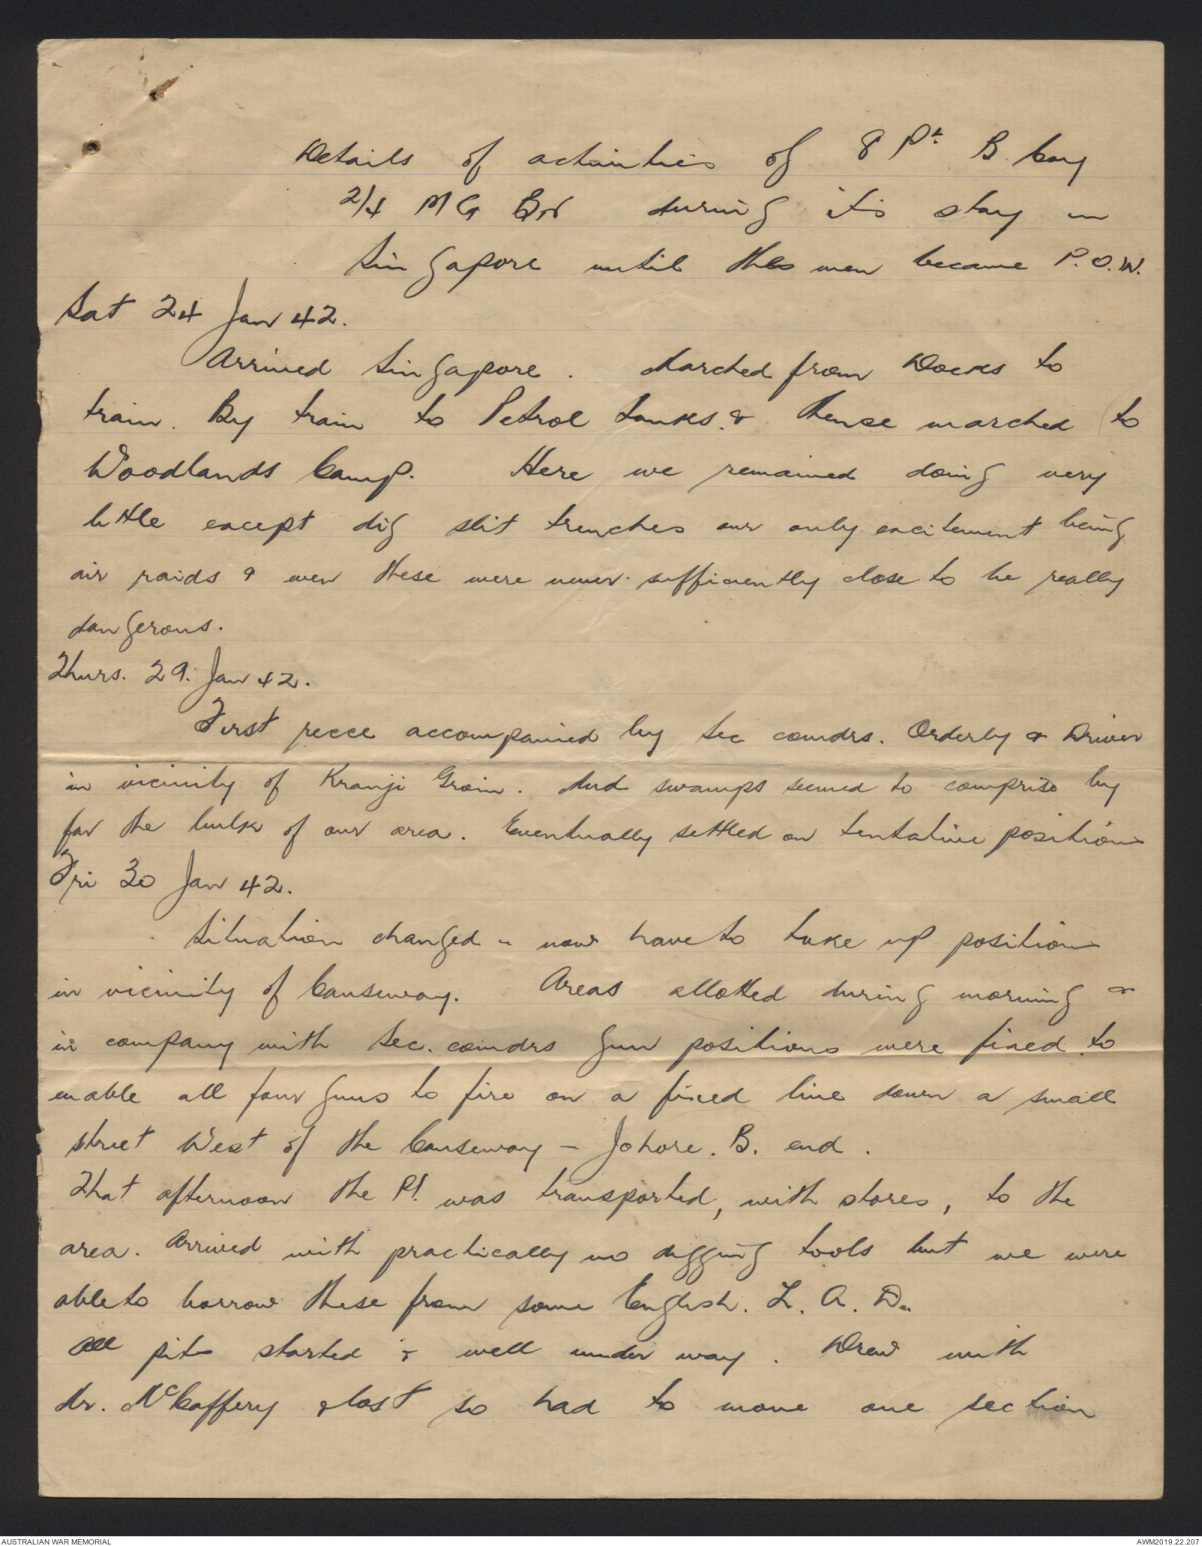 Details of activities of 8 Pt. B Coy
2/4 MG BN during its stay in
Singapore until the men became P.O.W.
Sat 24 Jan 42.
Arrived Singapore. Marched from Docks to
train. By train to Petrol tanks & thence marched to
Woodlands Camp. Here we remained doing very
little except dig slit trenches our only excitement being
air raids & even these were never sufficiently close to be really
dangerous.
Thurs. 29. Jan 42.
First recce accompanied by Sec comdrs. Orderly & Driver
in vicinity of Kranji Groin. Mud swamps seemed to comprise by
far the bulk of our area. Eventually settled on tentative positions
Fri 30 Jan 42.
Situation changed - now have to take up position
in vicinity of Causeway. Areas allotted during morning &
in company with Sec. comdrs gun positions were fixed to
enable all four guns to fire on a fixed line down a small
street West of the Causeway - Johore. B. end.
That afternoon the Pl. was transported, with stores, to the
area. Arrived with practically no digging tools but we were
able to borrow these from some English. L. A. D.
All pits started & well under way. Drew with
Mr. McCaffery & lost so had to move one section
AUSTRALIAN WAR MEMORIAL
AWM2019.22.207